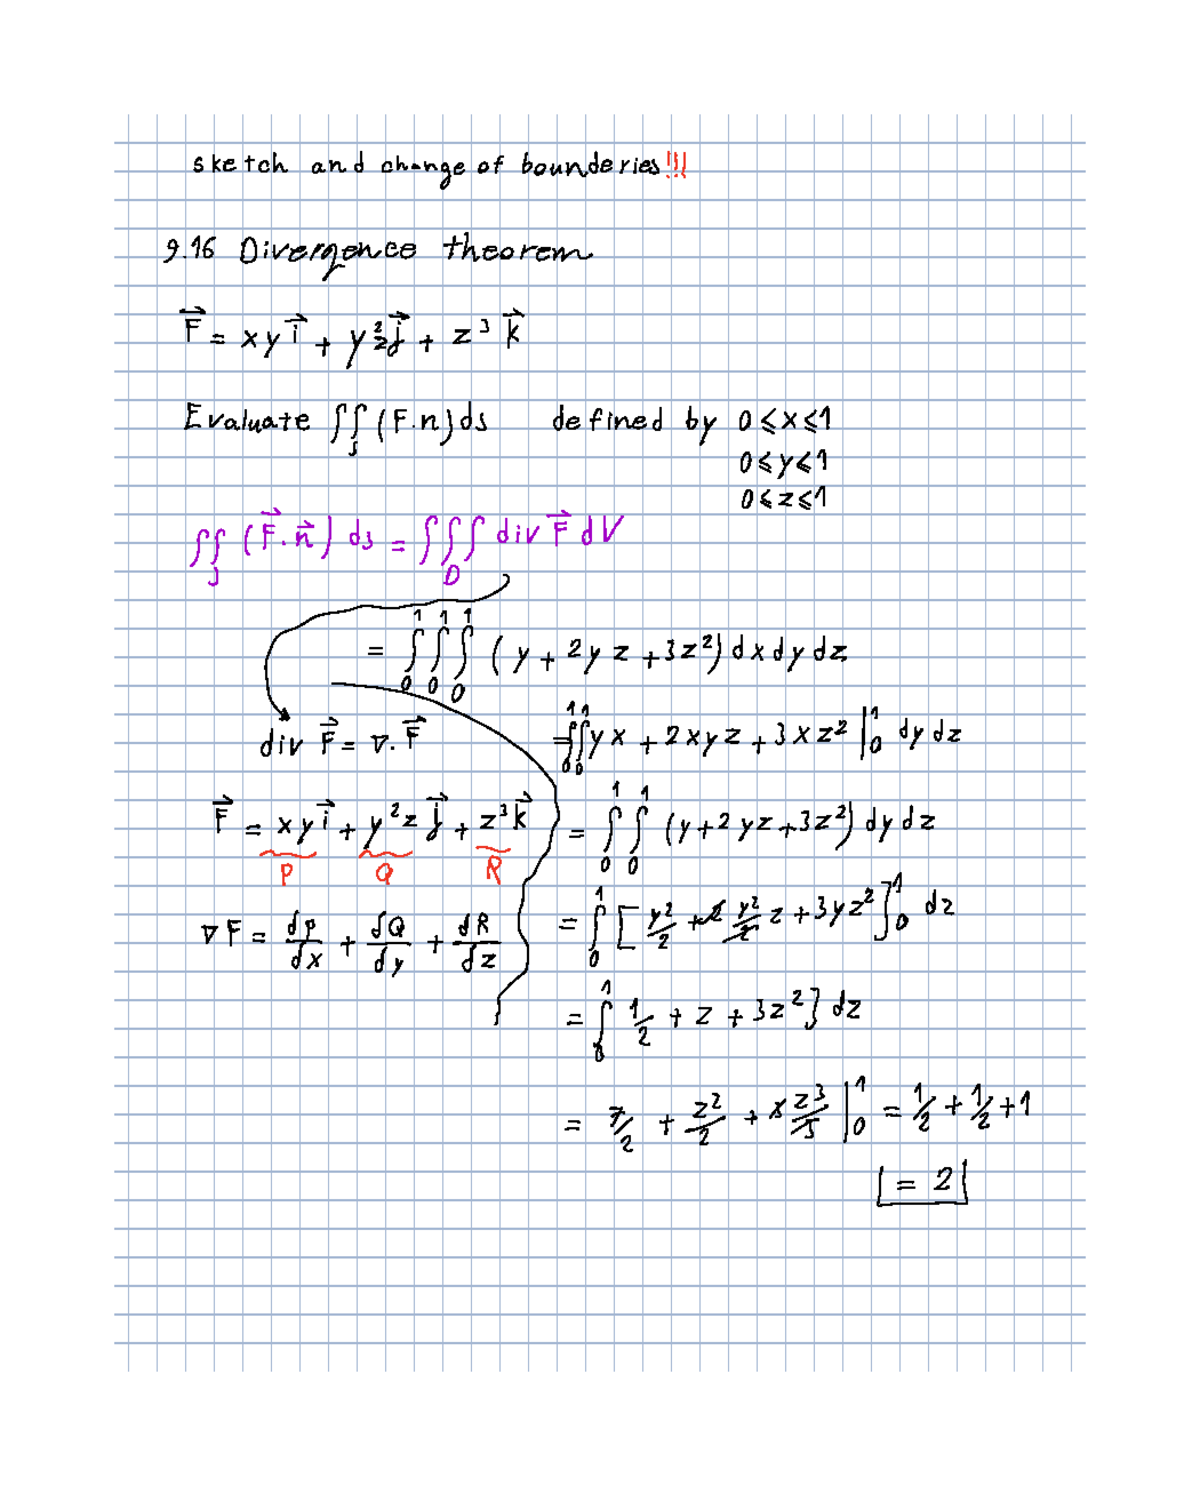 sketch and change of bounderies!!!
9.16 Divergence theorem
F⃗ = xy i⃗ + y²z j⃗ + z³ k⃗
Evaluate ∬ₛ (F.n)ds defined by 0≤x≤1
0≤y≤1
0≤z≤1
∬ₛ (F⃗.n⃗) ds = ∭_D div F⃗ dV
= ∫₀¹ ∫₀¹ ∫₀¹ (y + 2yz + 3z²) dxdydz
div F⃗ = ∇.F⃗
= ∫₀¹ ∫₀¹ yx + 2xyz + 3xz² |₀¹ dy dz
F⃗ = xy i⃗ + y²z j⃗ + z³ k⃗
P Q R
= ∫₀¹ ∫₀¹ (y + 2yz + 3z²) dy dz
∇F = dP/dx + dQ/dy + dR/dz
= ∫₀¹ [y²/2 + 2 y²/2 z + 3yz²]₀¹ dz
= ∫₀¹ 1/2 + z + 3z²] dz
= z/2 + z²/2 + 3 z³/3 |₀¹ = 1/2 + 1/2 + 1
= 2